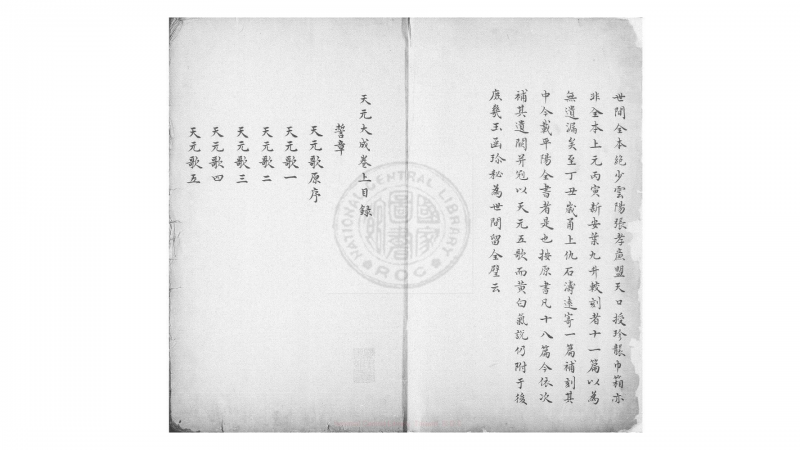 世間全本絕少雲陽張孝魚盟天口授珍襲巾箱亦
非全本上元丙寅新安葉九升較刻者十一篇以為
無遺漏矣至丁丑歲甬上仇石濤遠寄一篇補刻其
中今載平陽全書者是也按原書凡十八篇今依次
補其遺闕弁冠以天元五歌而黃白氣說仍附于後
庶幾玉函珍秘為世間留全璧云
天元大成卷上目錄
誓章
天元歌原序
天元歌一
天元歌二
天元歌三
天元歌四
天元歌五
NATIONAL CENTRAL LIBRARY
ROC
國家圖書